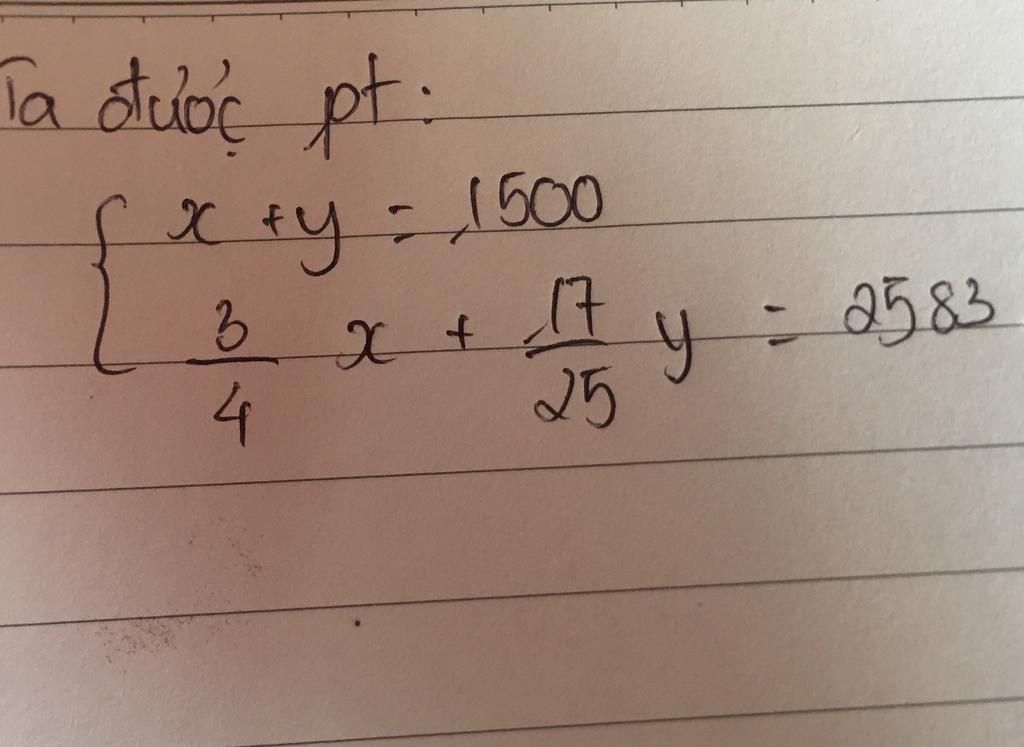 Ta được pt:
x + y = 1500
3/4 x + 17/25 y = 2583